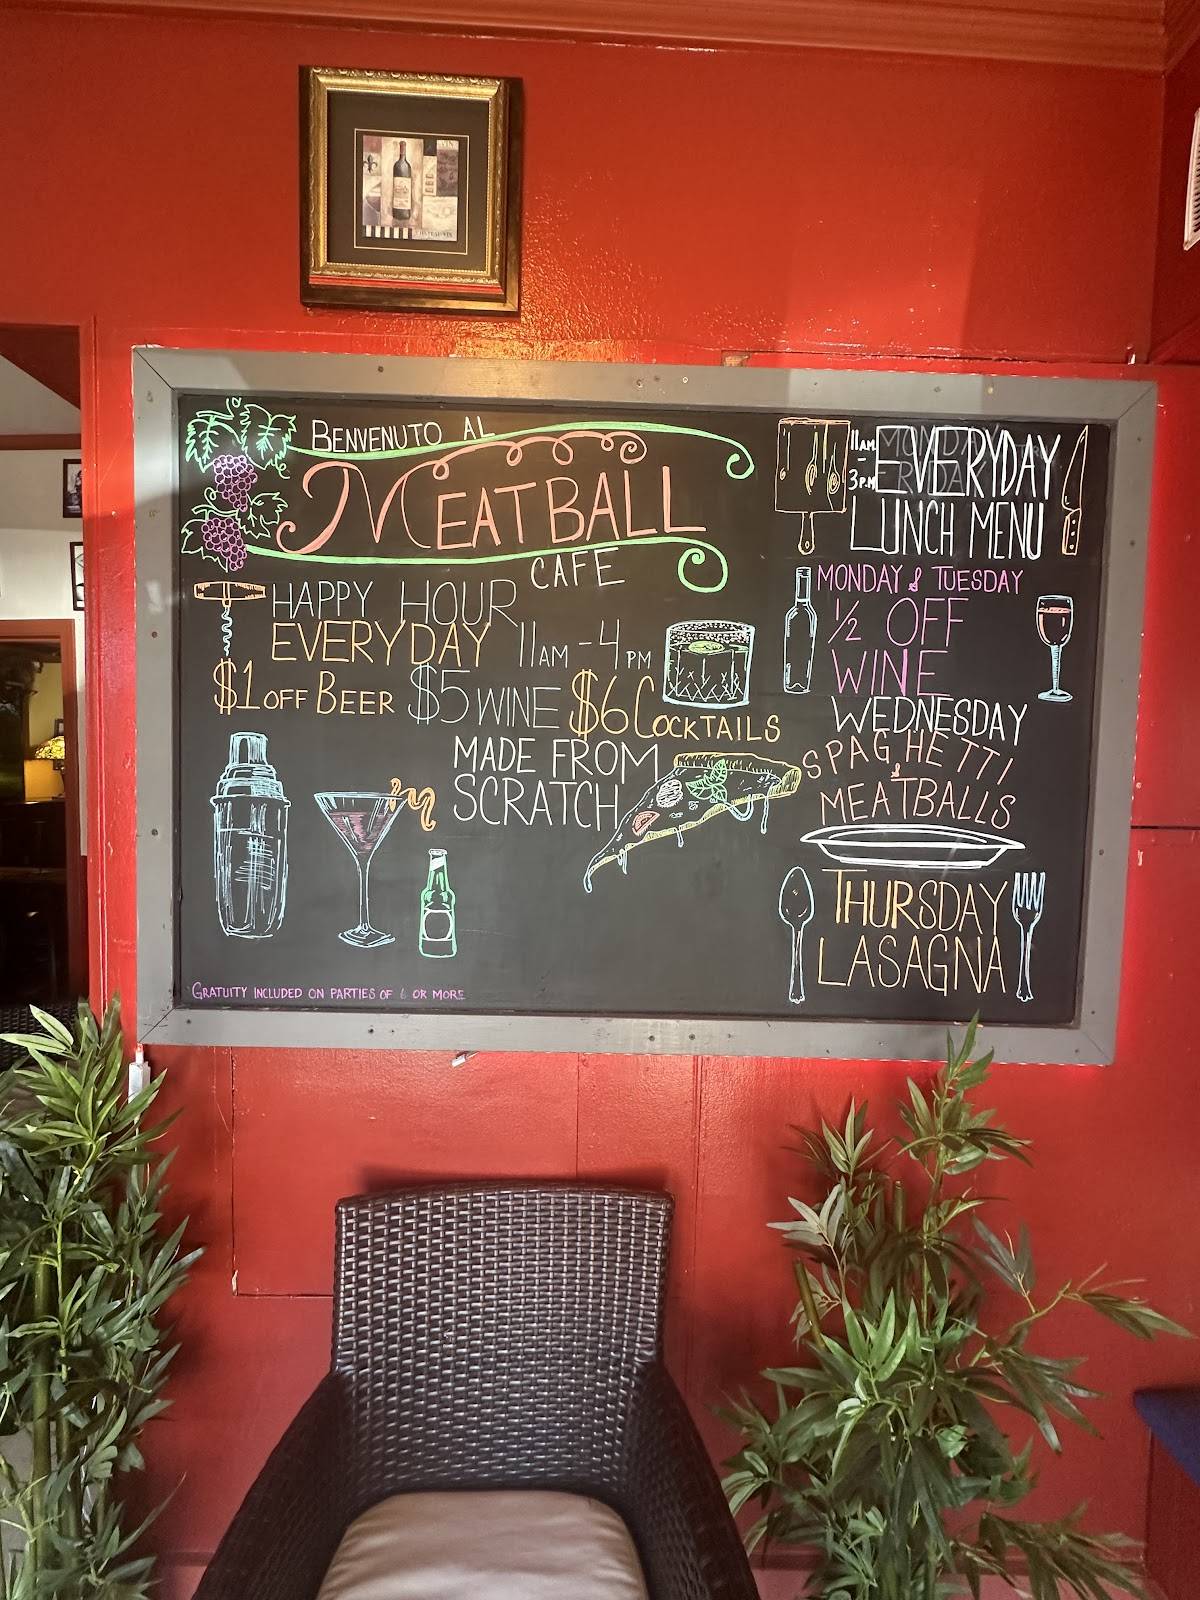 BENVENUTO AL
MEATBALL
CAFE
HAPPY HOUR
EVERYDAY 11AM - 4PM
$1 OFF BEER $5 WINE $6 COCKTAILS
MADE FROM
SCRATCH
GRATUITY INCLUDED ON PARTIES OF 6 OR MORE
11AM - 3PM
EVERYDAY
LUNCH MENU
MONDAY & TUESDAY
1/2 OFF
WINE
WEDNESDAY
SPAGHETTI
&
MEATBALLS
THURSDAY
LASAGNA